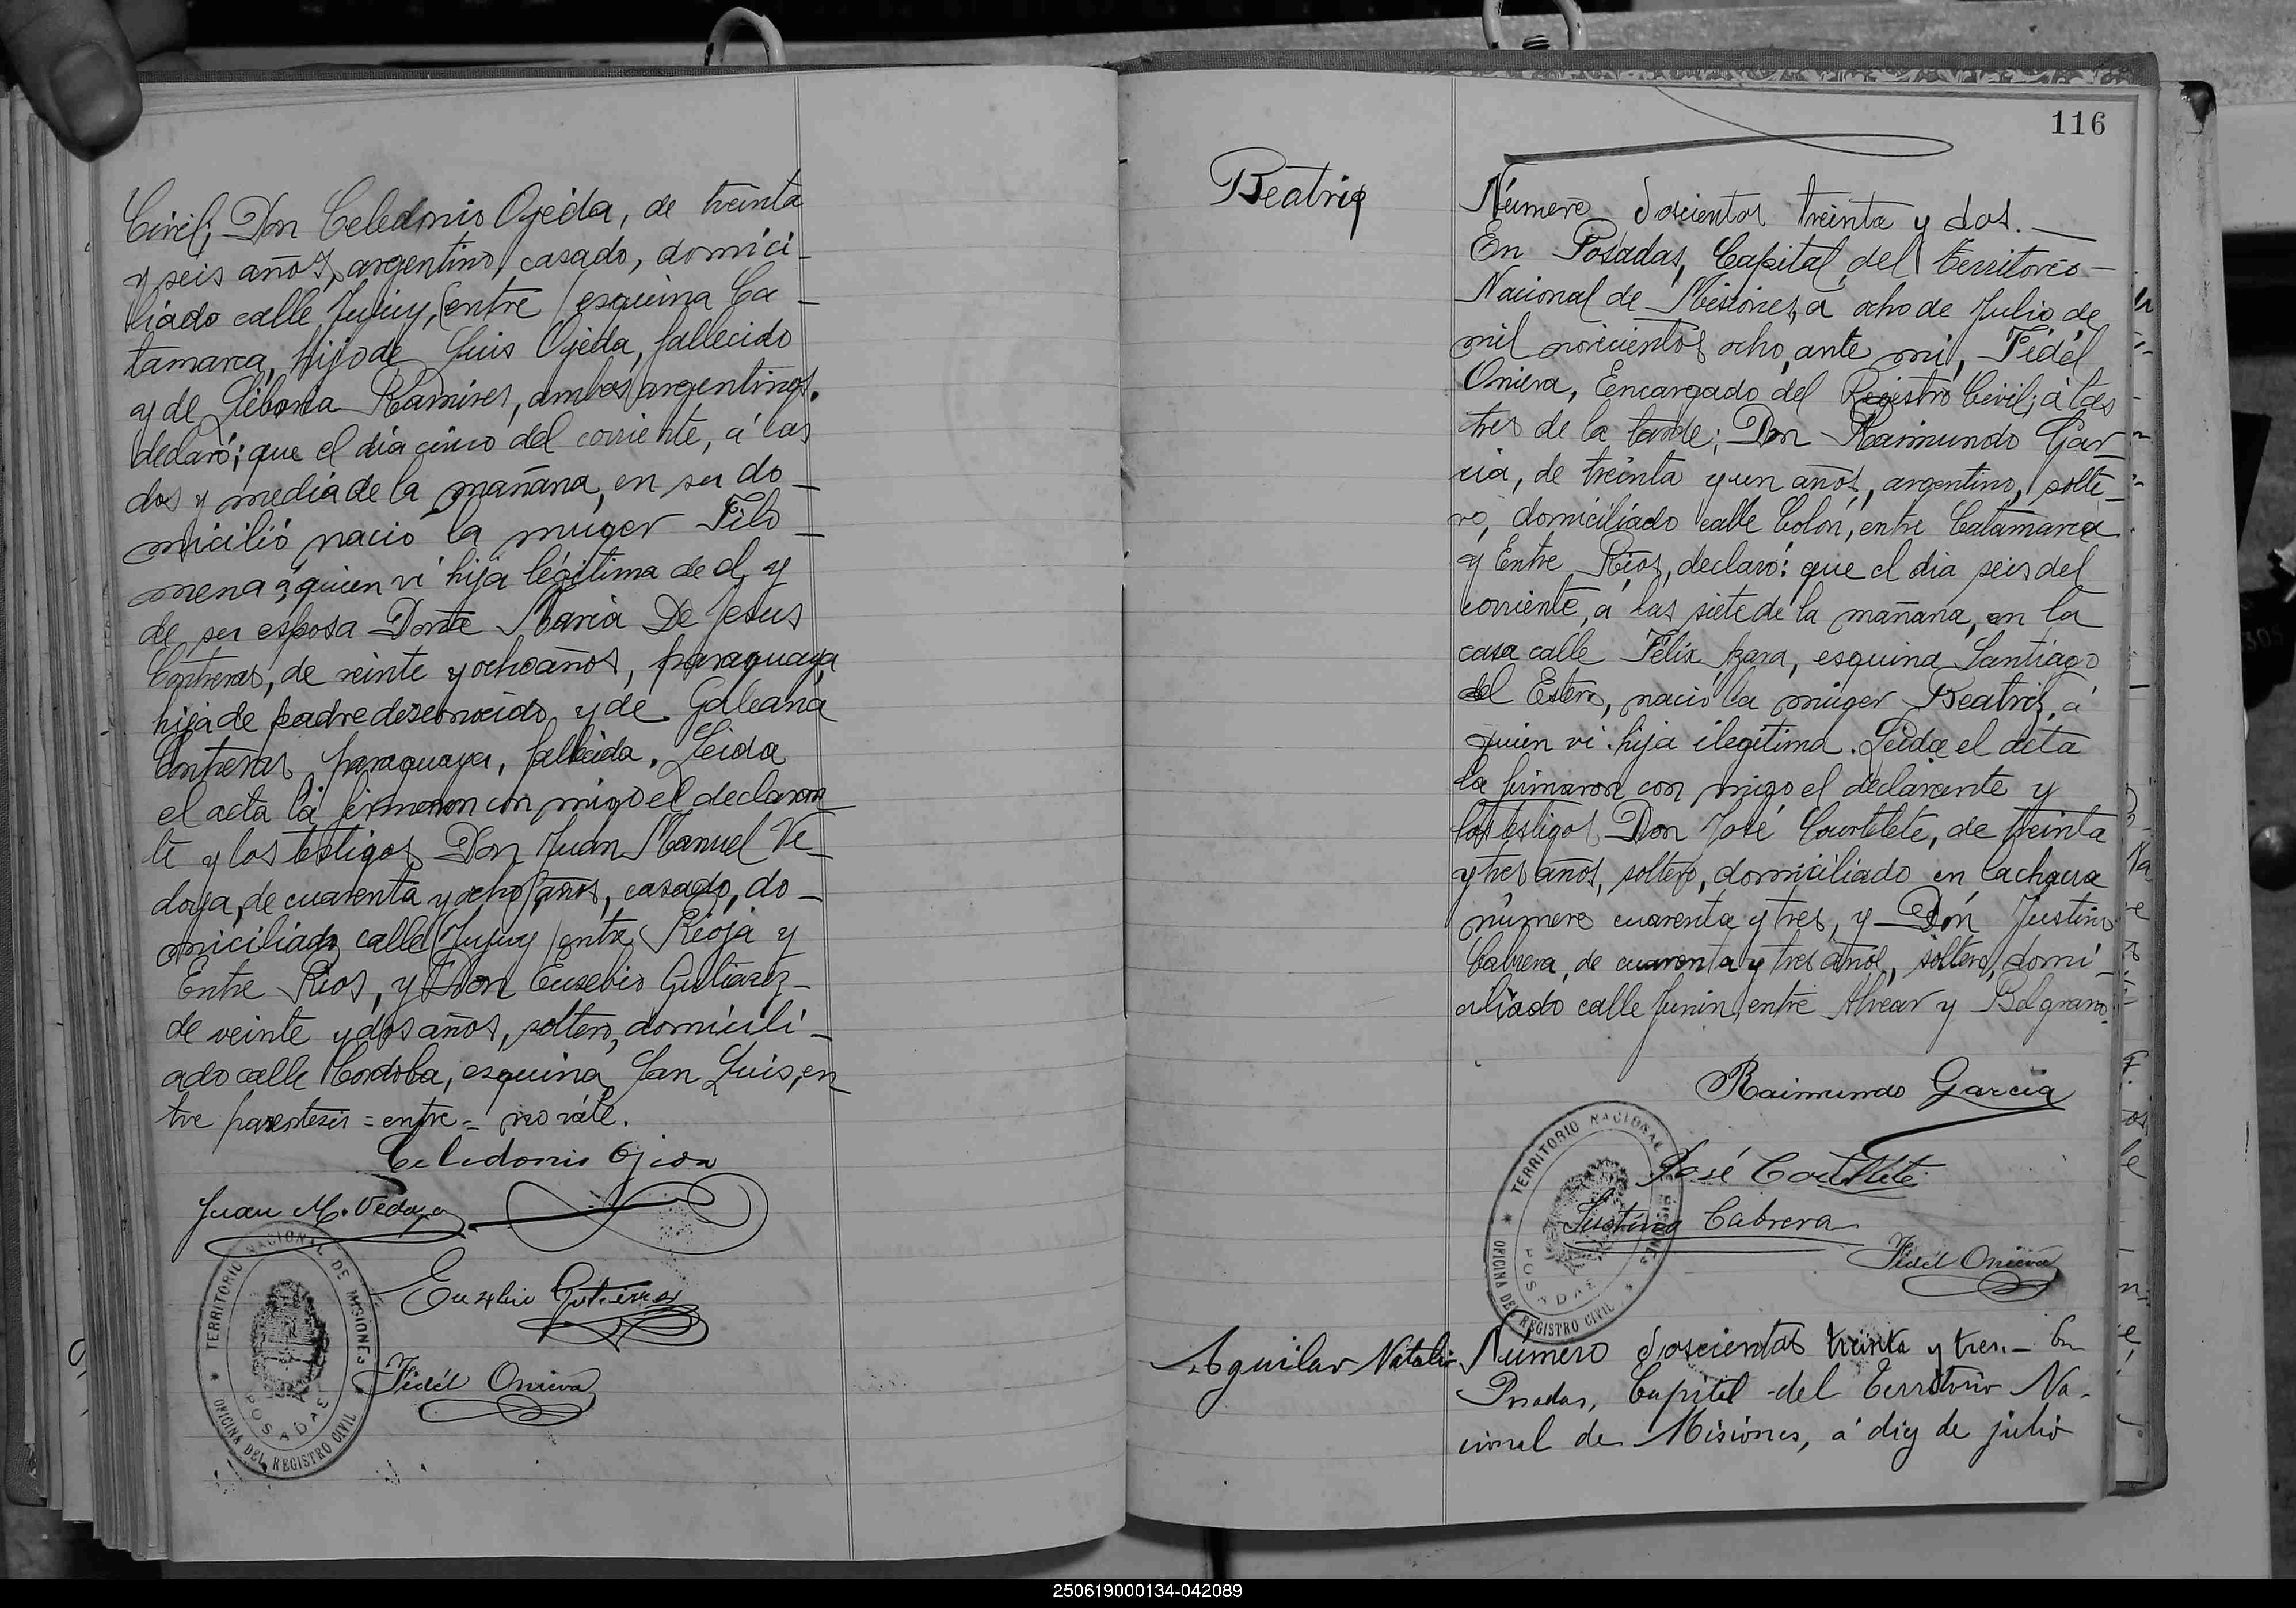 Civil; Don Celedonio Ojeda, de treinta
y seis años, argentino, casado, domici-
liado calle Jujuy, (entre) esquina Ca-
tamarca, hijo de Luis Ojeda, fallecido
y de Liboria Ramires, ambos argentinos.
declaró; que el dia cinco del corriente, á las
dos y media de la mañana, en su do-
micilió nacio la muger Filo-
mena á quien vi hija légitima de el y
de su esposa Doña Maria De Jesus
Contreras, de veinte y ocho años, paraguaya,
hija de padre desconocido y de Galeana
Contreras, paraguaya, fallecida. Leida
el acta la firmaron con migo el declaran
te y los testigos Don Juan Manuel Ve-
doya, de cuarenta y ocho años, casado, do-
miciliado calle Jujuy entre Rioja y
Entre Rios, y Don Eusebio Gutiérez-
de veinte y dos años, soltero, domicili-
ado calle Cordoba, esquina San Luis, en
tre parentesis = entre = no vale.
Celedonio Ojeda
Juan M. Vedoya
Eusebio Gutierrez
Fidél Onieva
TERRITORIO NACIONAL DE MISIONES
POSADAS
OFICINA DEL REGISTRO CIVIL
116
Beatriz
Número doscientos treinta y dos.—
En Posadas, Capital del territorio-
Nacional de Misiones, a ocho de Julio de
mil novecientos ocho, ante mi, Fidél
Onieva, Encargado del Registro Civil; á las
tres de la tarde; Don Raimundo Gar-
cia, de treinta y un años, argentino, solte-
ro, domiciliado calle Colón, entre Catamarca
y Entre Rios, declaró: que el dia seis del
corriente, a las siete de la mañana, en la
casa calle Félix Azara, esquina Santiago
del Estero, nació la muger Beatriz, á
quien vi hija ilegitima. Leida el acta
la firmaron con migo el declarante y
los testigos Don José Courtetete, de treinta
y tres años, soltero, domiciliado en la chacra
número cuarenta y tres, y Don Justino
Cabrera, de cuarenta y tres años, soltero, domi-
ciliado calle Junin, entre Alvear y Belgrano.
Raimundo Garcia
José
Justino Cabrera
Fidél Onieva
TERRITORIO NACIONAL DE MISIONES
POSADAS
OFICINA DEL REGISTRO CIVIL
Aguilar Natalio
Número doscientos treinta y tres.- En
Posadas, Capital del Territorio Na-
cional de Misiones, á diez de julio
250619000134-042089